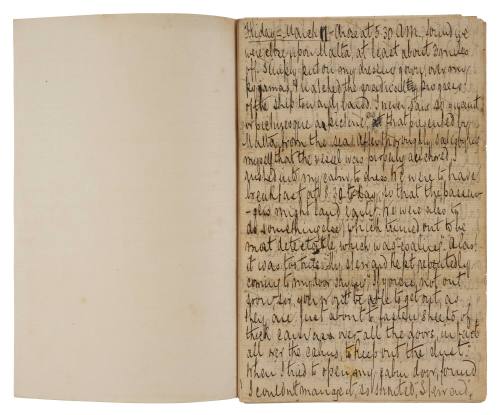 Friday = March 11 - Arose at 5.30 A.M. found we
were close upon Malta, at least about 2 miles
off. Simply put on my dressing gown, over my
pyjamas, & watched the gradually progress
of the ship towards land. I never saw so quaint
or picturesque a picture, as that presented by
Malta, from the sea. After thoroughly satisfying
myself that the vessel was properly anchored, I
rushed into my cabin to dress. We were to have
breakfast at 8.30 to day, so that the passen-
-gers might land early. We were also to
do something else, which turned out to be
most detestable, which was "coaling". Alas!
it was too true. My steward kept repeatedly
coming to my door saying "If you're not out
you won't be able to get out, as
they are just about to fasten sheets of
thick canvass over all the doors, in fact
all over the cabins, to keep out the dust."
When I tried to open my cabin door, found
I couldn't manage it, so shouted, Steward,